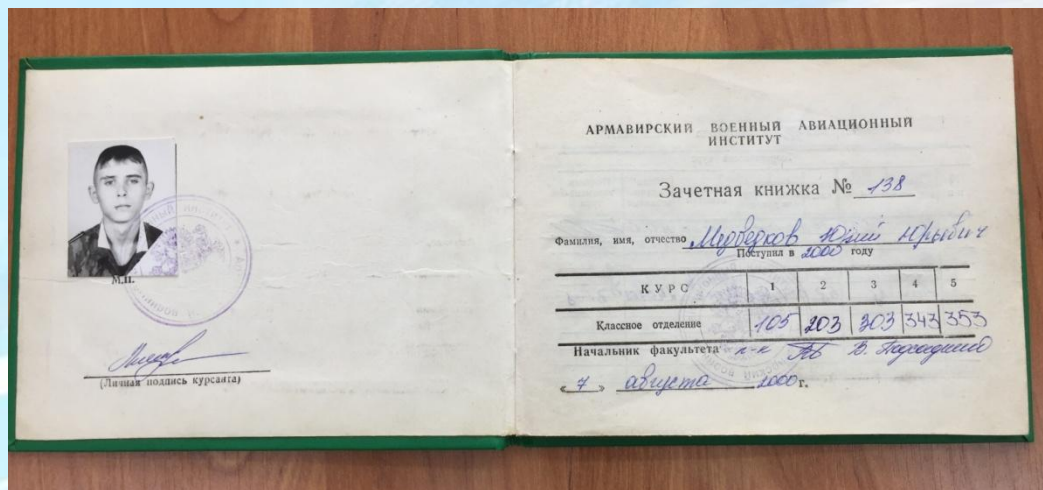 М.П.
(Личная подпись курсанта)
АРМАВИРСКИЙ ВОЕННЫЙ АВИАЦИОННЫЙ
ИНСТИТУТ
Зачетная книжка № 138
Фамилия, имя, отчество Медведков Юрий Юрьевич
Поступил в 2000 году
КУРС 1 2 3 4 5
Классное отделение 105 203 303 343 353
Начальник факультета п-к В.
« 7 » августа 2000 г.